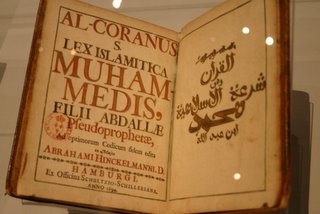 AL-CORANUS
S.
LEX ISLAMITICA
MUHAM-
MEDIS,
FILII ABDALLÆ
Pseudoprophetæ,
ad optimorum Codicum fidem edita
ABRAHAMI HINCKELMANNI, D.
HAMBURGI,
Ex Officina SCHULTZIO-SCHILLERIANA,
ANNO
القرآن
وهو
شرعة
الاسلامية
محمد
ابن عبد الله